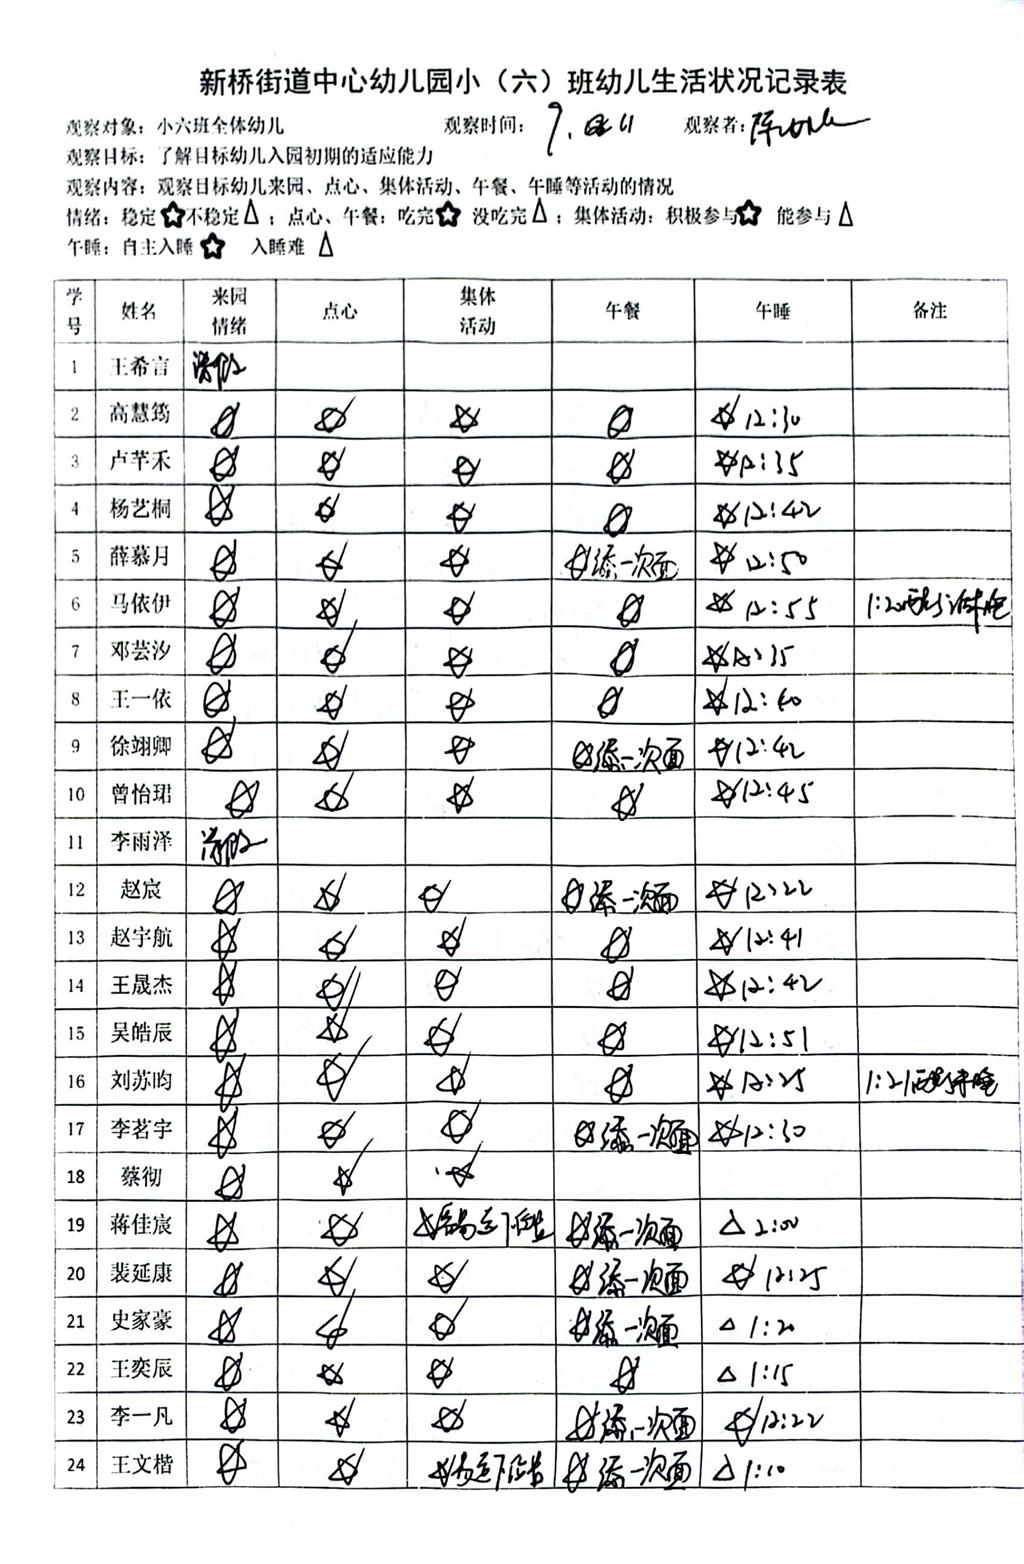 新桥街道中心幼儿园小（六）班幼儿生活状况记录表
观察对象：小六班全体幼儿 观察时间： 观察者：
观察目标：了解目标幼儿入园初期的适应能力
观察内容：观察目标幼儿来园、点心、集体活动、午餐、午睡等活动的情况
情绪：稳定☆不稳定△；点心、午餐：吃完☆ 没吃完△；集体活动：积极参与☆ 能参与△
午睡：自主入睡☆ 入睡难△
学号 姓名 来园情绪 点心 集体活动 午餐 午睡 备注
1 王希言
2 高慧筠 ☆ ☆ ☆ ☆ ☆ 12:30
3 卢芊禾 ☆ ☆ ☆ ☆ ☆ 12:35
4 杨艺桐 ☆ ☆ ☆ ☆ ☆ 12:42
5 薛慕月 ☆ ☆ ☆ ☆添一次面 ☆ 12:50
6 马依伊 ☆ ☆ ☆ ☆ ☆ 12:55 1:20
7 邓芸汐 ☆ ☆ ☆ ☆ ☆ 12:35
8 王一依 ☆ ☆ ☆ ☆ ☆ 12:40
9 徐翊卿 ☆ ☆ ☆ ☆添一次面 ☆ 12:42
10 曾怡珺 ☆ ☆ ☆ ☆ ☆ 12:45
11 李雨泽
12 赵宸 ☆ ☆ ☆ ☆添一次面 ☆ 12:22
13 赵宇航 ☆ ☆ ☆ ☆ ☆ 12:41
14 王晟杰 ☆ ☆ ☆ ☆ ☆ 12:42
15 吴皓辰 ☆ ☆ ☆ ☆ ☆ 12:51
16 刘苏昀 ☆ ☆ ☆ ☆ ☆ 12:25 1:21
17 李茗宇 ☆ ☆ ☆ ☆添一次面 ☆ 12:30
18 蔡彻 ☆ ☆ ☆
19 蒋佳宸 ☆ ☆ ☆ ☆添一次面 △ 2:00
20 裴延康 ☆ ☆ ☆ ☆添一次面 ☆ 12:25
21 史家豪 ☆ ☆ ☆ ☆添一次面 △ 1:20
22 王奕辰 ☆ ☆ ☆ ☆ △ 1:15
23 李一凡 ☆ ☆ ☆ ☆添一次面 ☆ 12:22
24 王文楷 ☆ ☆ ☆ ☆添一次面 △ 1:10